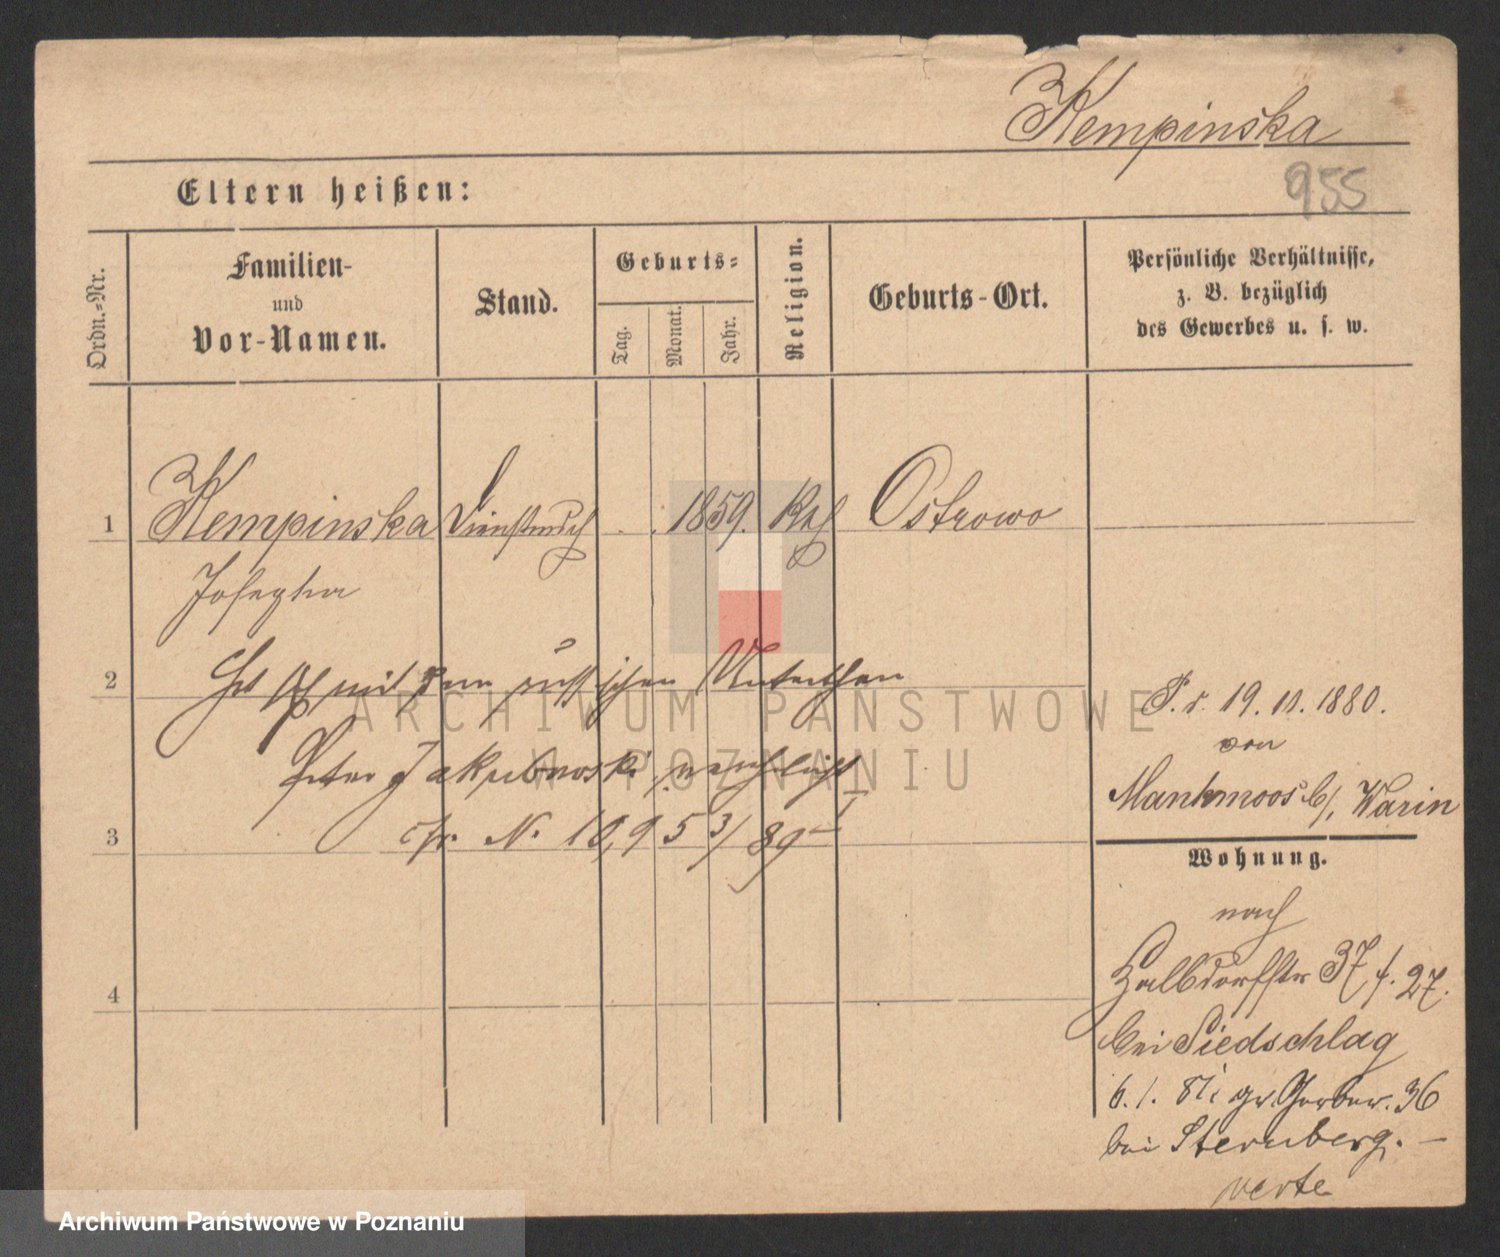 Kempinska
955
Eltern heißen:
Ordn.-Nr.
Familien-
und
Vor-Namen.
Stand.
Geburts-
Tag.
Monat.
Jahr.
Religion.
Geburts-Ort.
Persönliche Verhältnisse,
z. B. bezüglich
des Gewerbes u. s. w.
1 Kempinska Dienstmdch 1859. Kath Ostrowo
Josepha
2 sich mit dem russischen Unterthan
Peter Jakubowski verehelicht
3 cfr. N. 10953/89
4
P. v. 19. 11. 1880.
von
Mankmoos b/. Warin
Wohnung.
nach
Halbdorfstr 37 f. 27.
bei Siedschlag
6.1. 81 gr. Gerber. 36
bei Sternberg. —
verte
ARCHIWUM PAŃSTWOWE
W POZNANIU
Archiwum Państwowe w Poznaniu